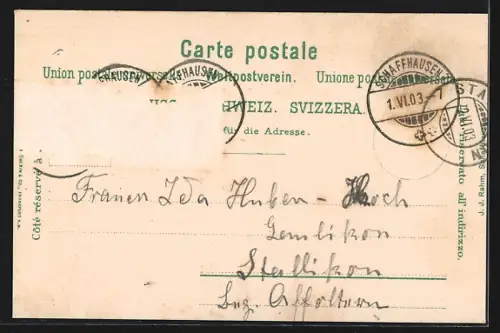 Carte postale
Union postale universelle. Weltpostverein. Unione postale universale
SCHWEIZ. SVIZZERA.
für die Adresse.
SCHAFFHAUSEN
1.VI.03.-7
HAUSEN
FFHAUSEN
STA
VI.03
Côté réservé à
riservato all' indirizzo.
J. J. Rahm,
Frauen Ida Huber-Hoch
Stallikon
Bez. Affoltern